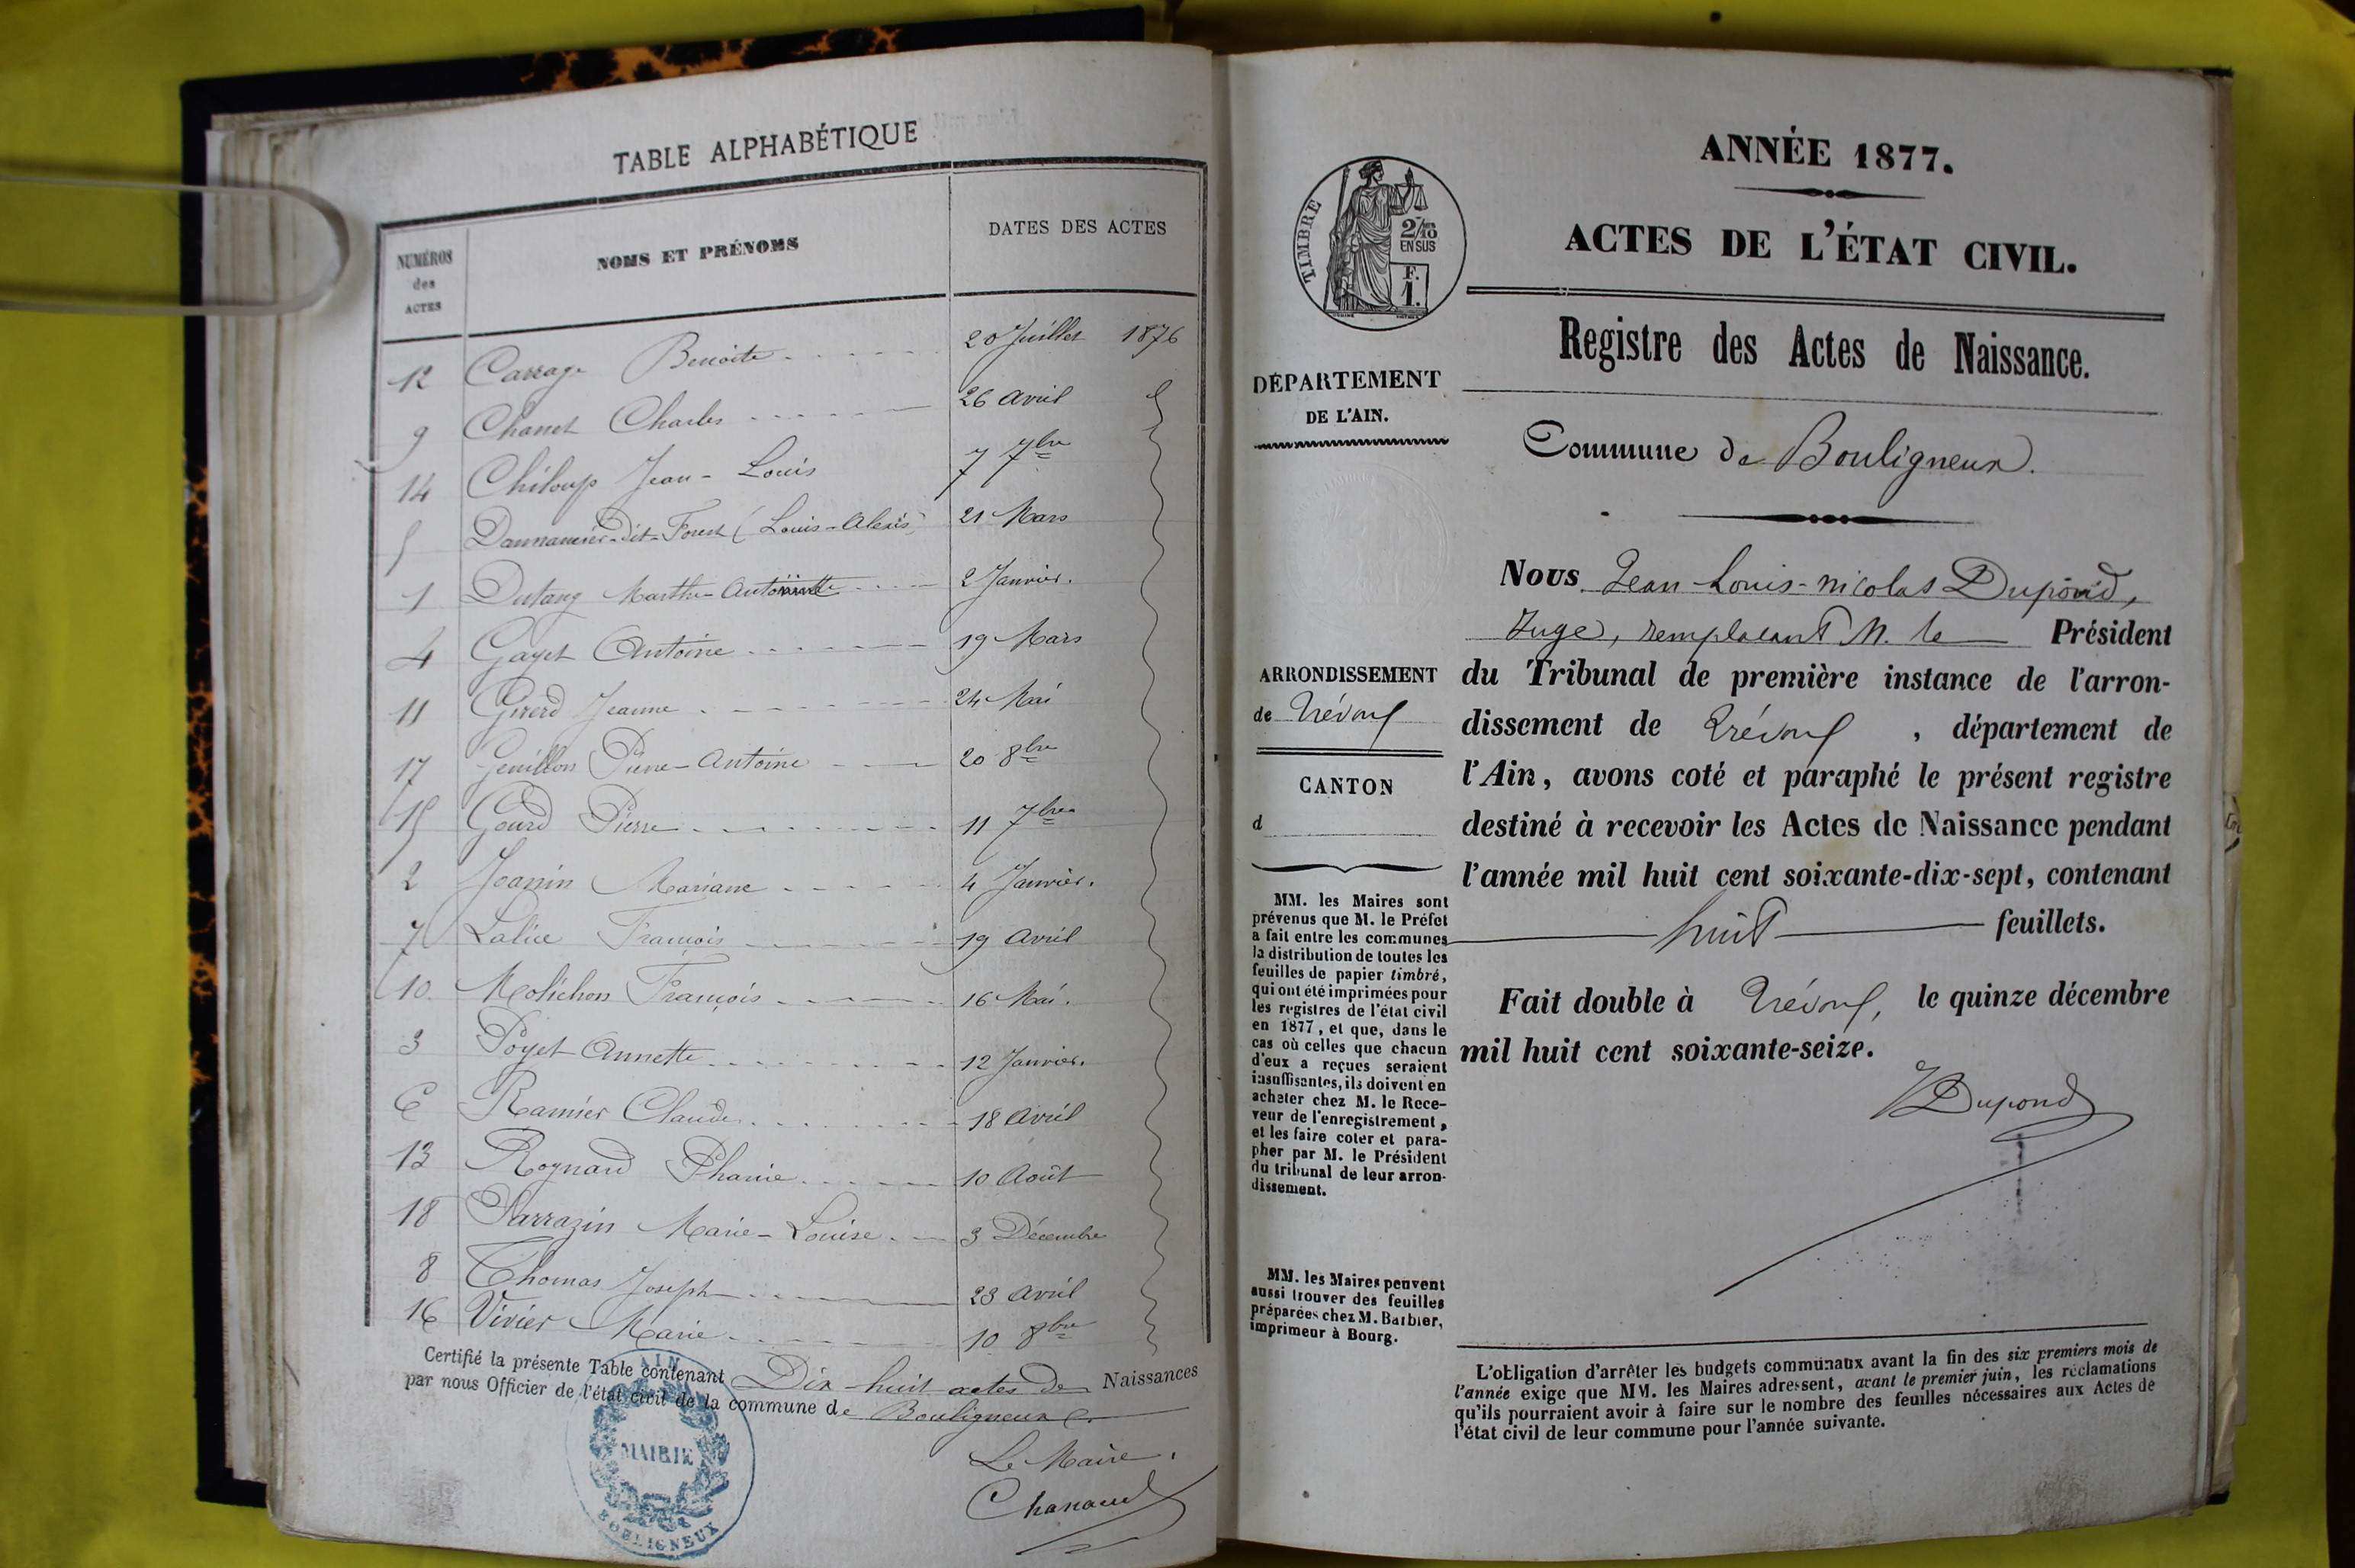 TABLE ALPHABÉTIQUE
NUMÉROS des ACTES
NOMS ET PRÉNOMS
DATES DES ACTES
12 Carrage Benoite 20 Juillet 1876
9 Chanet Charles 26 Avril
14 Chiloup Jean-Louis 7 7bre
5 Dannancier-dit-Forest (Louis-Alexis) 21 Mars
1 Dutang Marthe-Antoinette 2 Janvier.
4 Gayet Antoine 19 Mars
11 Girerd Jeanne 24 Mai
17 Genillon Pierre-Antoine 20 8bre
15 Gourd Pierre 11 7bre
2 Jeanin Mariane 4 Janvier.
7 Lalive François 19 Avril
10 Molichon François 16 Mai.
3 Poyet Annette 12 Janvier.
6 Ramier Claude 18 Avril
13 Roynard Phanie 10 Août
18 Sarrazin Marie-Louise 3 Décembre
8 Thomas Joseph 23 Avril
16 Vivier Marie 10 8bre
Certifié la présente Table contenant Dix-huit actes de Naissances
par nous Officier de l'état civil de la commune de Bouligneux
Le Maire,
Chanaud
AIN
MAIRIE
BOULIGNEUX
TIMBRE
2/10
EN SUS
F.
1.
DÉPARTEMENT
DE L'AIN.
ARRONDISSEMENT
de Trévoux
CANTON
d
MM. les Maires sont
prévenus que M. le Préfet
a fait entre les communes
la distribution de toutes les
feuilles de papier timbré,
qui ont été imprimées pour
les registres de l'état civil
en 1877, et que, dans le
cas où celles que chacun
d'eux a reçues seraient
insuffisantes, ils doivent en
acheter chez M. le Rece-
veur de l'enregistrement,
et les faire coter et para-
pher par M. le Président
du tribunal de leur arron-
dissement.
MM. les Maires peuvent
aussi trouver des feuilles
préparées chez M. Barbier,
imprimeur à Bourg.
ANNÉE 1877.
ACTES DE L'ÉTAT CIVIL.
Registre des Actes de Naissance.
Commune de Bouligneux.
Nous Jean-Louis-Nicolas Dupond,
Juge, remplacant M. le Président
du Tribunal de première instance de l'arron-
dissement de Trévoux, département de
l'Ain, avons coté et paraphé le présent registre
destiné à recevoir les Actes de Naissance pendant
l'année mil huit cent soixante-dix-sept, contenant
huit feuillets.
Fait double à Trévoux, le quinze décembre
mil huit cent soixante-seize.
Dupond
L'obligation d'arrêter les budgets communaux avant la fin des six premiers mois de
l'année exige que MM. les Maires adressent, avant le premier juin, les réclamations
qu'ils pourraient avoir à faire sur le nombre des feuilles nécessaires aux Actes de
l'état civil de leur commune pour l'année suivante.